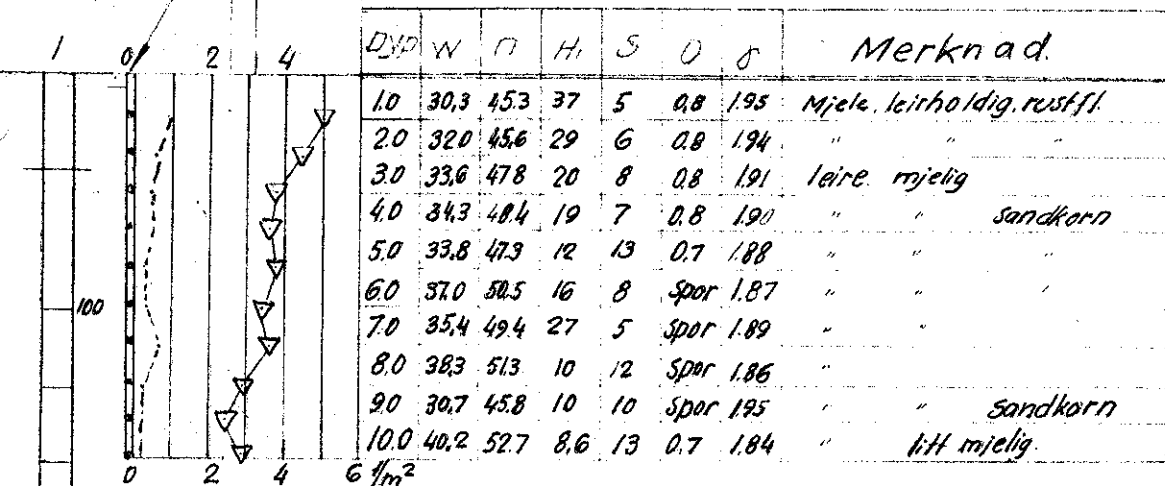 1 0 2 4 Dyp W n H₁ S O γ Merknad.
1.0 30,3 45.3 37 5 0.8 1.95 Mjele, leirholdig, rustfl.
2.0 32.0 45,6 29 6 0.8 1.94 " " "
3.0 33,6 47.8 20 8 0.8 1.91 leire mjelig
4.0 34,3 48.4 19 7 0.8 1.90 " " sandkorn
5.0 33.8 47.3 12 13 0.7 1.88 " " "
100 6.0 37.0 50.5 16 8 Spor 1.87 " " "
7.0 35,4 49.4 27 5 Spor 1.89 " "
8.0 38.3 51.3 10 12 Spor 1.86 "
9.0 30.7 45.8 10 10 Spor 1.95 " " Sandkorn
10.0 40.2 52.7 8.6 13 0.7 1.84 " litt mjelig.
0 2 4 6 t/m²